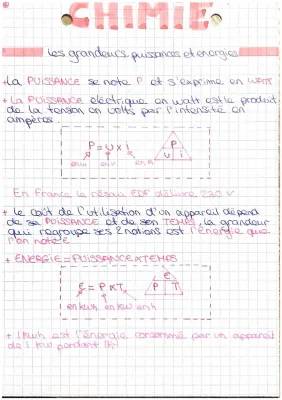 CHIMIE
les grandeurs puissances et energies
La PUISSANCE se note P et s'exprime en WATT
La PUISSANCE électrique en watt est le produit
de la tension en volts par l'intensité en
ampères.
P = U x I
en w en v en A
P
U I
En France le réseau EDF délivre 220 V
le coût de l'utilisation d'un appareil dépend
de sa PUISSANCE et de son TEMPS, la grandeur
qui regroupe ses 2 notions est l'énergie que
l'on note E
ENERGIE = PUISSANCE x TEMPS
E = P x T
en kwh en kw en h
E
P T
1 kwh est l'énergie consommé par un appareil
de 1 kw pendant 1h